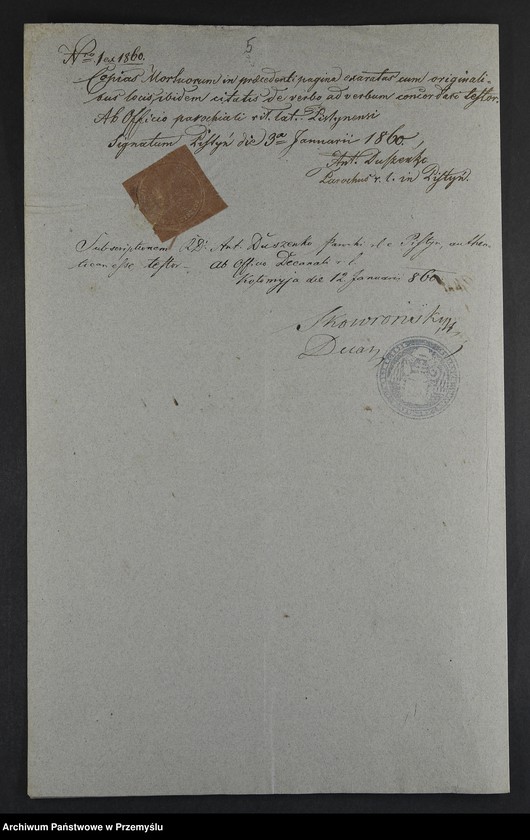 5
Nro 1 ex 1860.
Copias Mortuorum in praecedenti pagina exaratas cum originali-
bus locis ibidem citatis de verbo ad verbum concordare testor.
Ab Officio parochiali rit. lat. Pistynensi
Signatum Pistyń die 3a Januarii 1860.
Ant. Duszenko
Parochus r. l. in Pistyń.
Subscriptionem Ant. Duszenko Pistyn, authen
ticam esse testor Ab Officio Decanali r. l.
Kołomyja die 12 Januarii 860
Skowroński
Decan
Archiwum Państwowe w Przemyślu